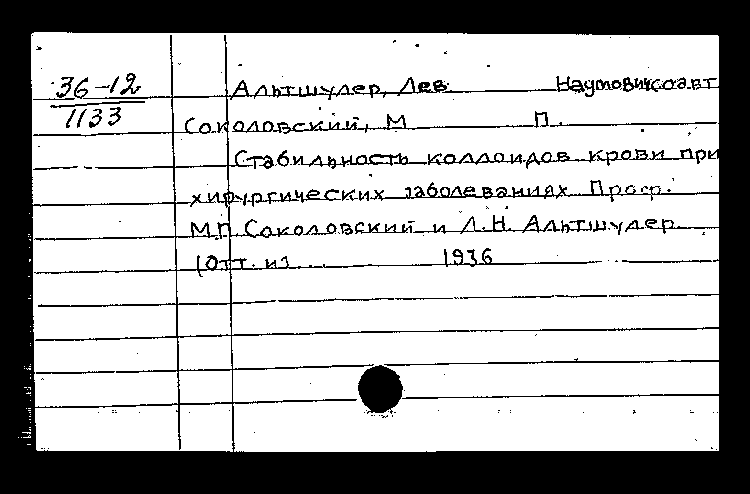 36-12
1133
Альтшулер, Лев Наумович соавт
Соколовский, М П.
Стабильность коллоидов крови при
хирургических заболеваниях Проф.
М.П. Соколовский и Л.Н. Альтшулер
(Отт. из ... 1936